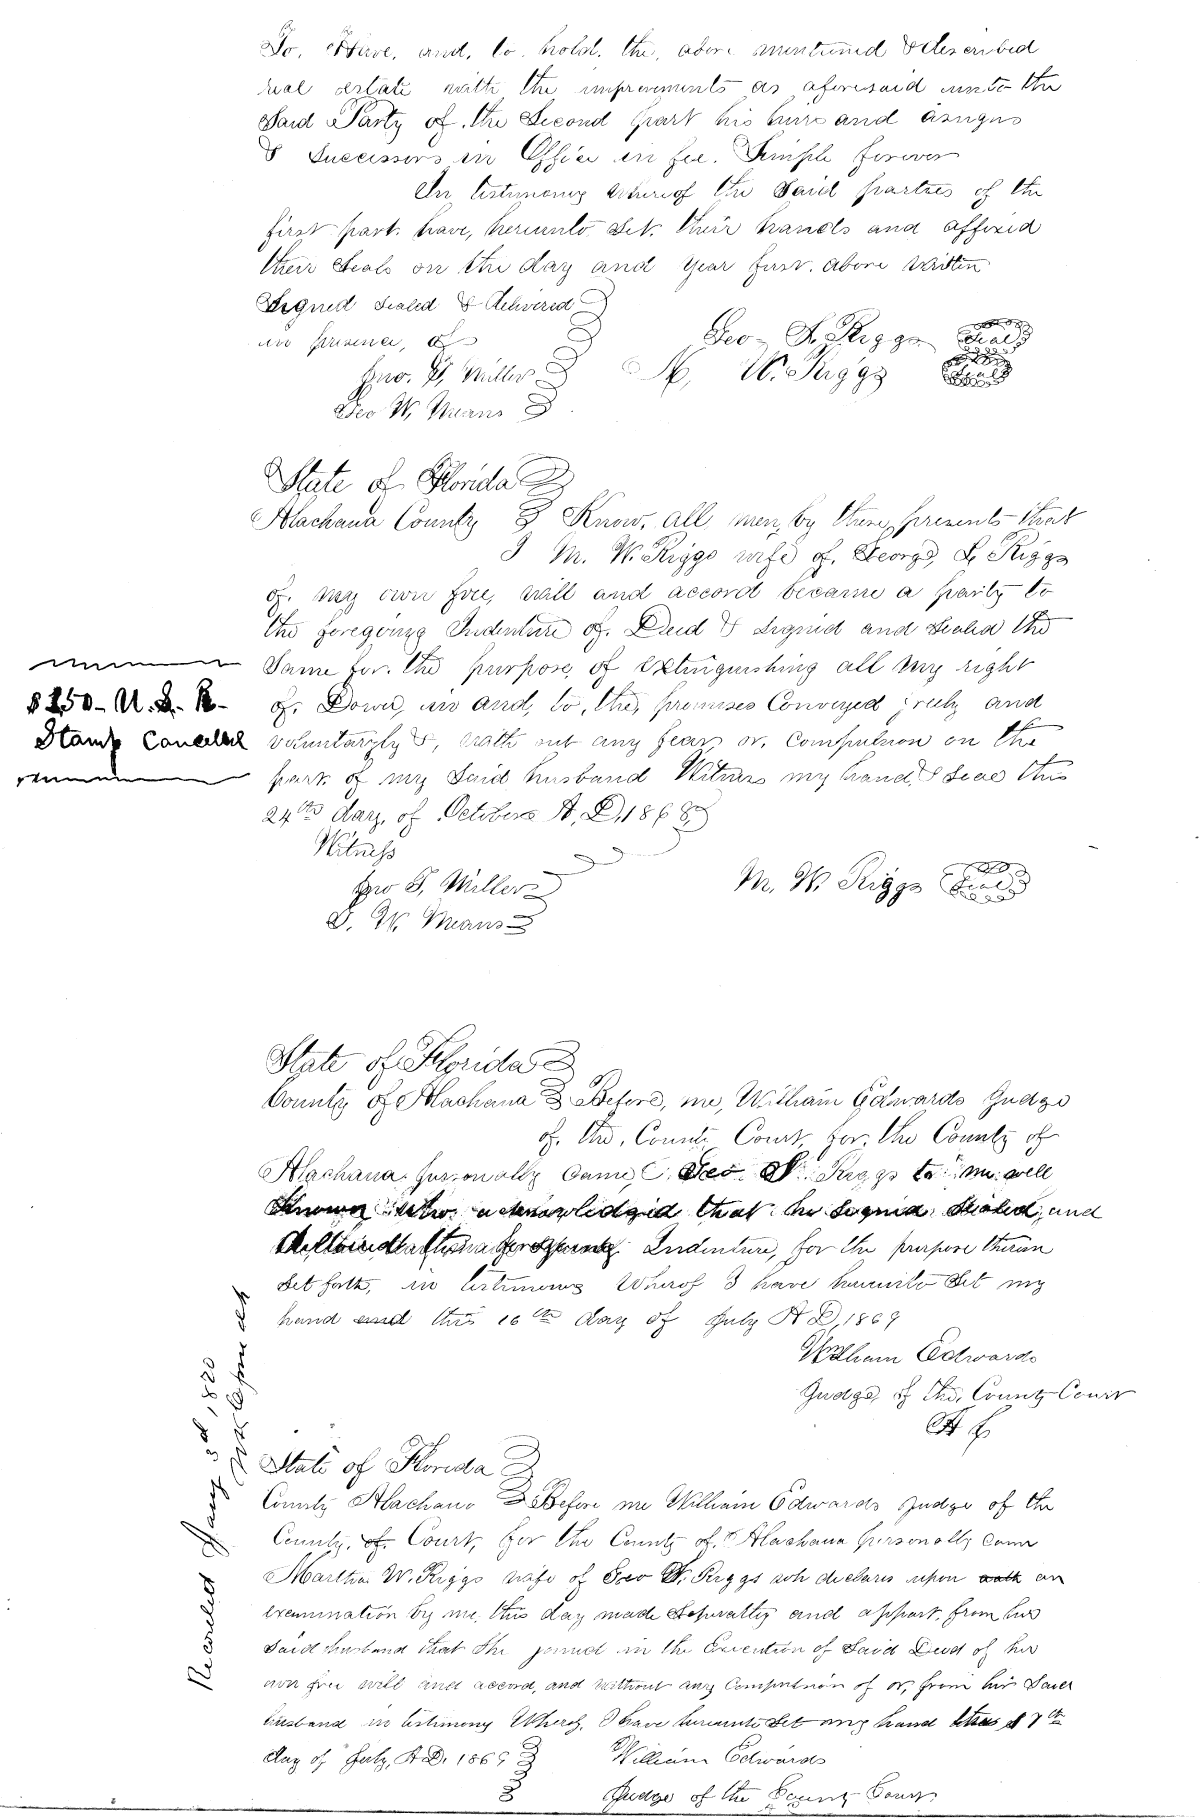 To, Have, and, to hold, the, above mentioned & described
real estate with the improvements as aforesaid unto the
Said Party of, the Second part his heirs and assigns
& Successors in Office in fee. Simple forever
In testimony whereof the Said parties of the
first part. have, hereunto Set. their hands and affixed
their Seals on the day and year first. above written
Signed Sealed & delivered
in presence, of
Geo- S. Riggs Seal
Jno. T, Miller
M, W. Riggs Seal
Geo W, Means
State of Florida
Alachua County Know, all, men, by these, presents that
I M. W. Riggs wife of, George, S, Riggs
of. my own free, will and accord became a party to
the foregoing Indenture of. Deed & signed and Sealed the
Same for. the purpose, of extinguishing all my right
of. Dower, in and, to, the, premises Conveyed freely and
voluntarily &, with out any fear, or, Compulsion on the
part. of my Said husband Witness my hand, & Seal this
24th day, of October A, D, 1868
$1.50- U. S. R-
Stamp Cancelled
Witness
Jno T, Miller
M. W. Riggs Seal
G. W. Means
State of Florida
County of Alachua Before, me, William Edwards Judge
of. the, County Court, for, the County of
Alachua personally Came, Geo. S. Riggs to me well
Known who acknowledged that he Signed Sealed, and
delivered the foregoing Indenture, for the purpose therein
Set forth, in testimony Wherof I have hereunto Set my
hand and this 16th day of July A D, 1869
William Edwards
Judge, of the, County Court
A C
Recorded Jany 3d, 1870
State of Florida
County Alachua Before me William Edwards Judge of the
County, of Court, for the County of, Alachua personally Came
Martha W. Riggs wife of Geo S. Riggs who declares upon oath an
examination by me, this day made Seperatly and appart. from her
Said husband that She joined in the Execution of Said Deed of her
own free will and accord, and without any Compulsion of or, from her Said
husband in testimony Wherof, I have hereunto Set my hand this 17th
day of July, A.D. 1869
William Edwards
Judge of the County Court